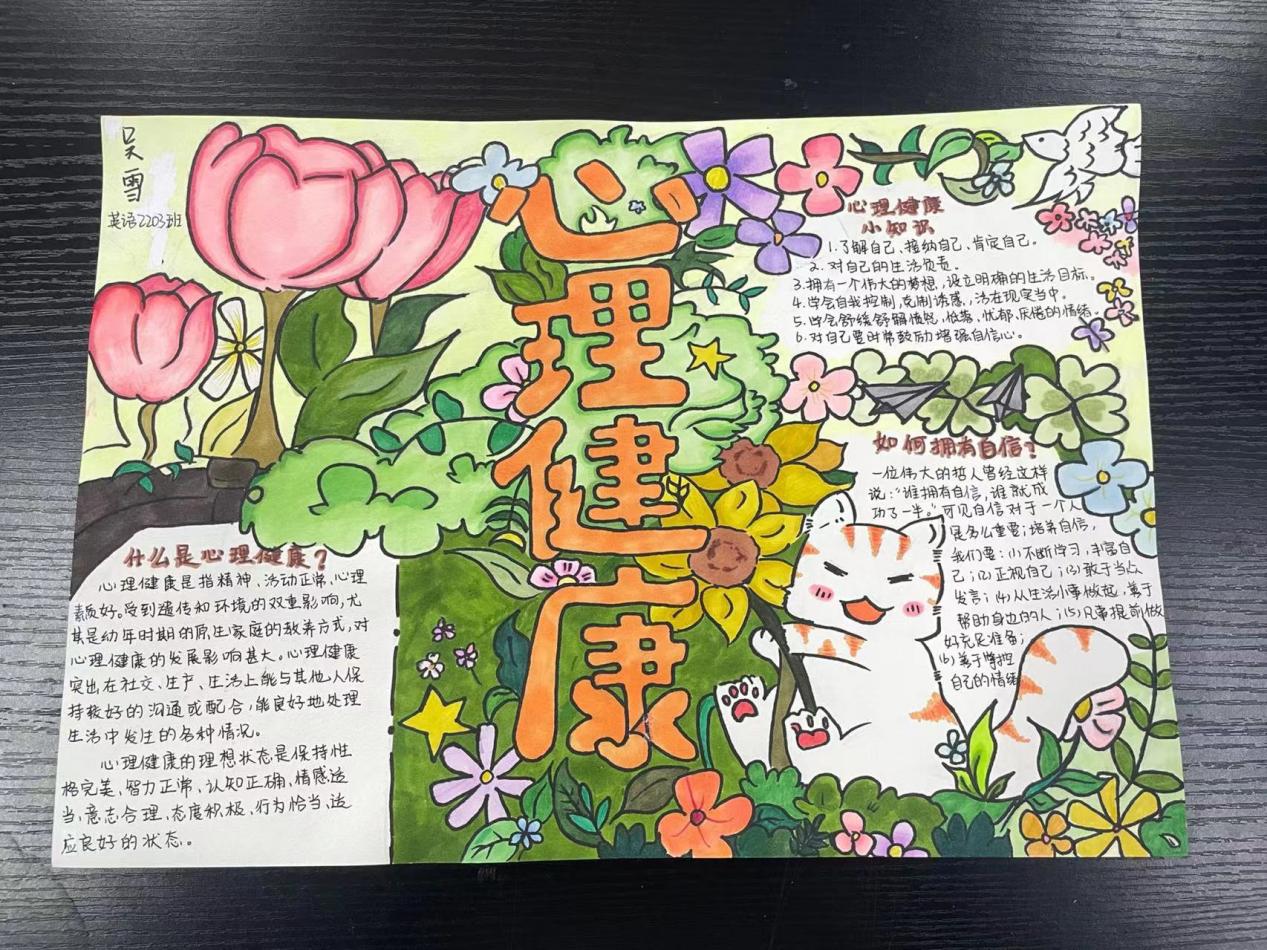 吴雪
英语2203班
心理健康
心理健康
小知识
1.了解自己、接纳自己、肯定自己。
2.对自己的生活负责。
3.拥有一个伟大的梦想,设立明确的生活目标。
4.学会自我控制,克制诱惑,活在现实当中。
5.学会舒缓舒解愤怒、低落、忧郁、厌倦的情绪。
6.对自己要时常鼓励增强自信心。
如何拥有自信?
一位伟大的哲人曾经这样
说:“谁拥有自信,谁就成
功了一半。”可见自信对于一个人
是多么重要;培养自信,
我们要:(1)不断学习,丰富自
己;(2)正视自己;(3)敢于当众
发言;(4)从生活小事做起,善于
帮助身边的人;(5)凡事提前做
好充足准备;
(6)善于掌控
自己的情绪
什么是心理健康?
心理健康是指精神、活动正常、心理
素质好。受到遗传和环境的双重影响,尤
其是幼年时期的原生家庭的教养方式,对
心理健康的发展影响甚大。心理健康
突出在社交、生产、生活上能与其他人保
持较好的沟通或配合,能良好地处理
生活中发生的各种情况。
心理健康的理想状态是保持性
格完美、智力正常、认知正确、情感适
当、意志合理、态度积极、行为恰当、适
应良好的状态。